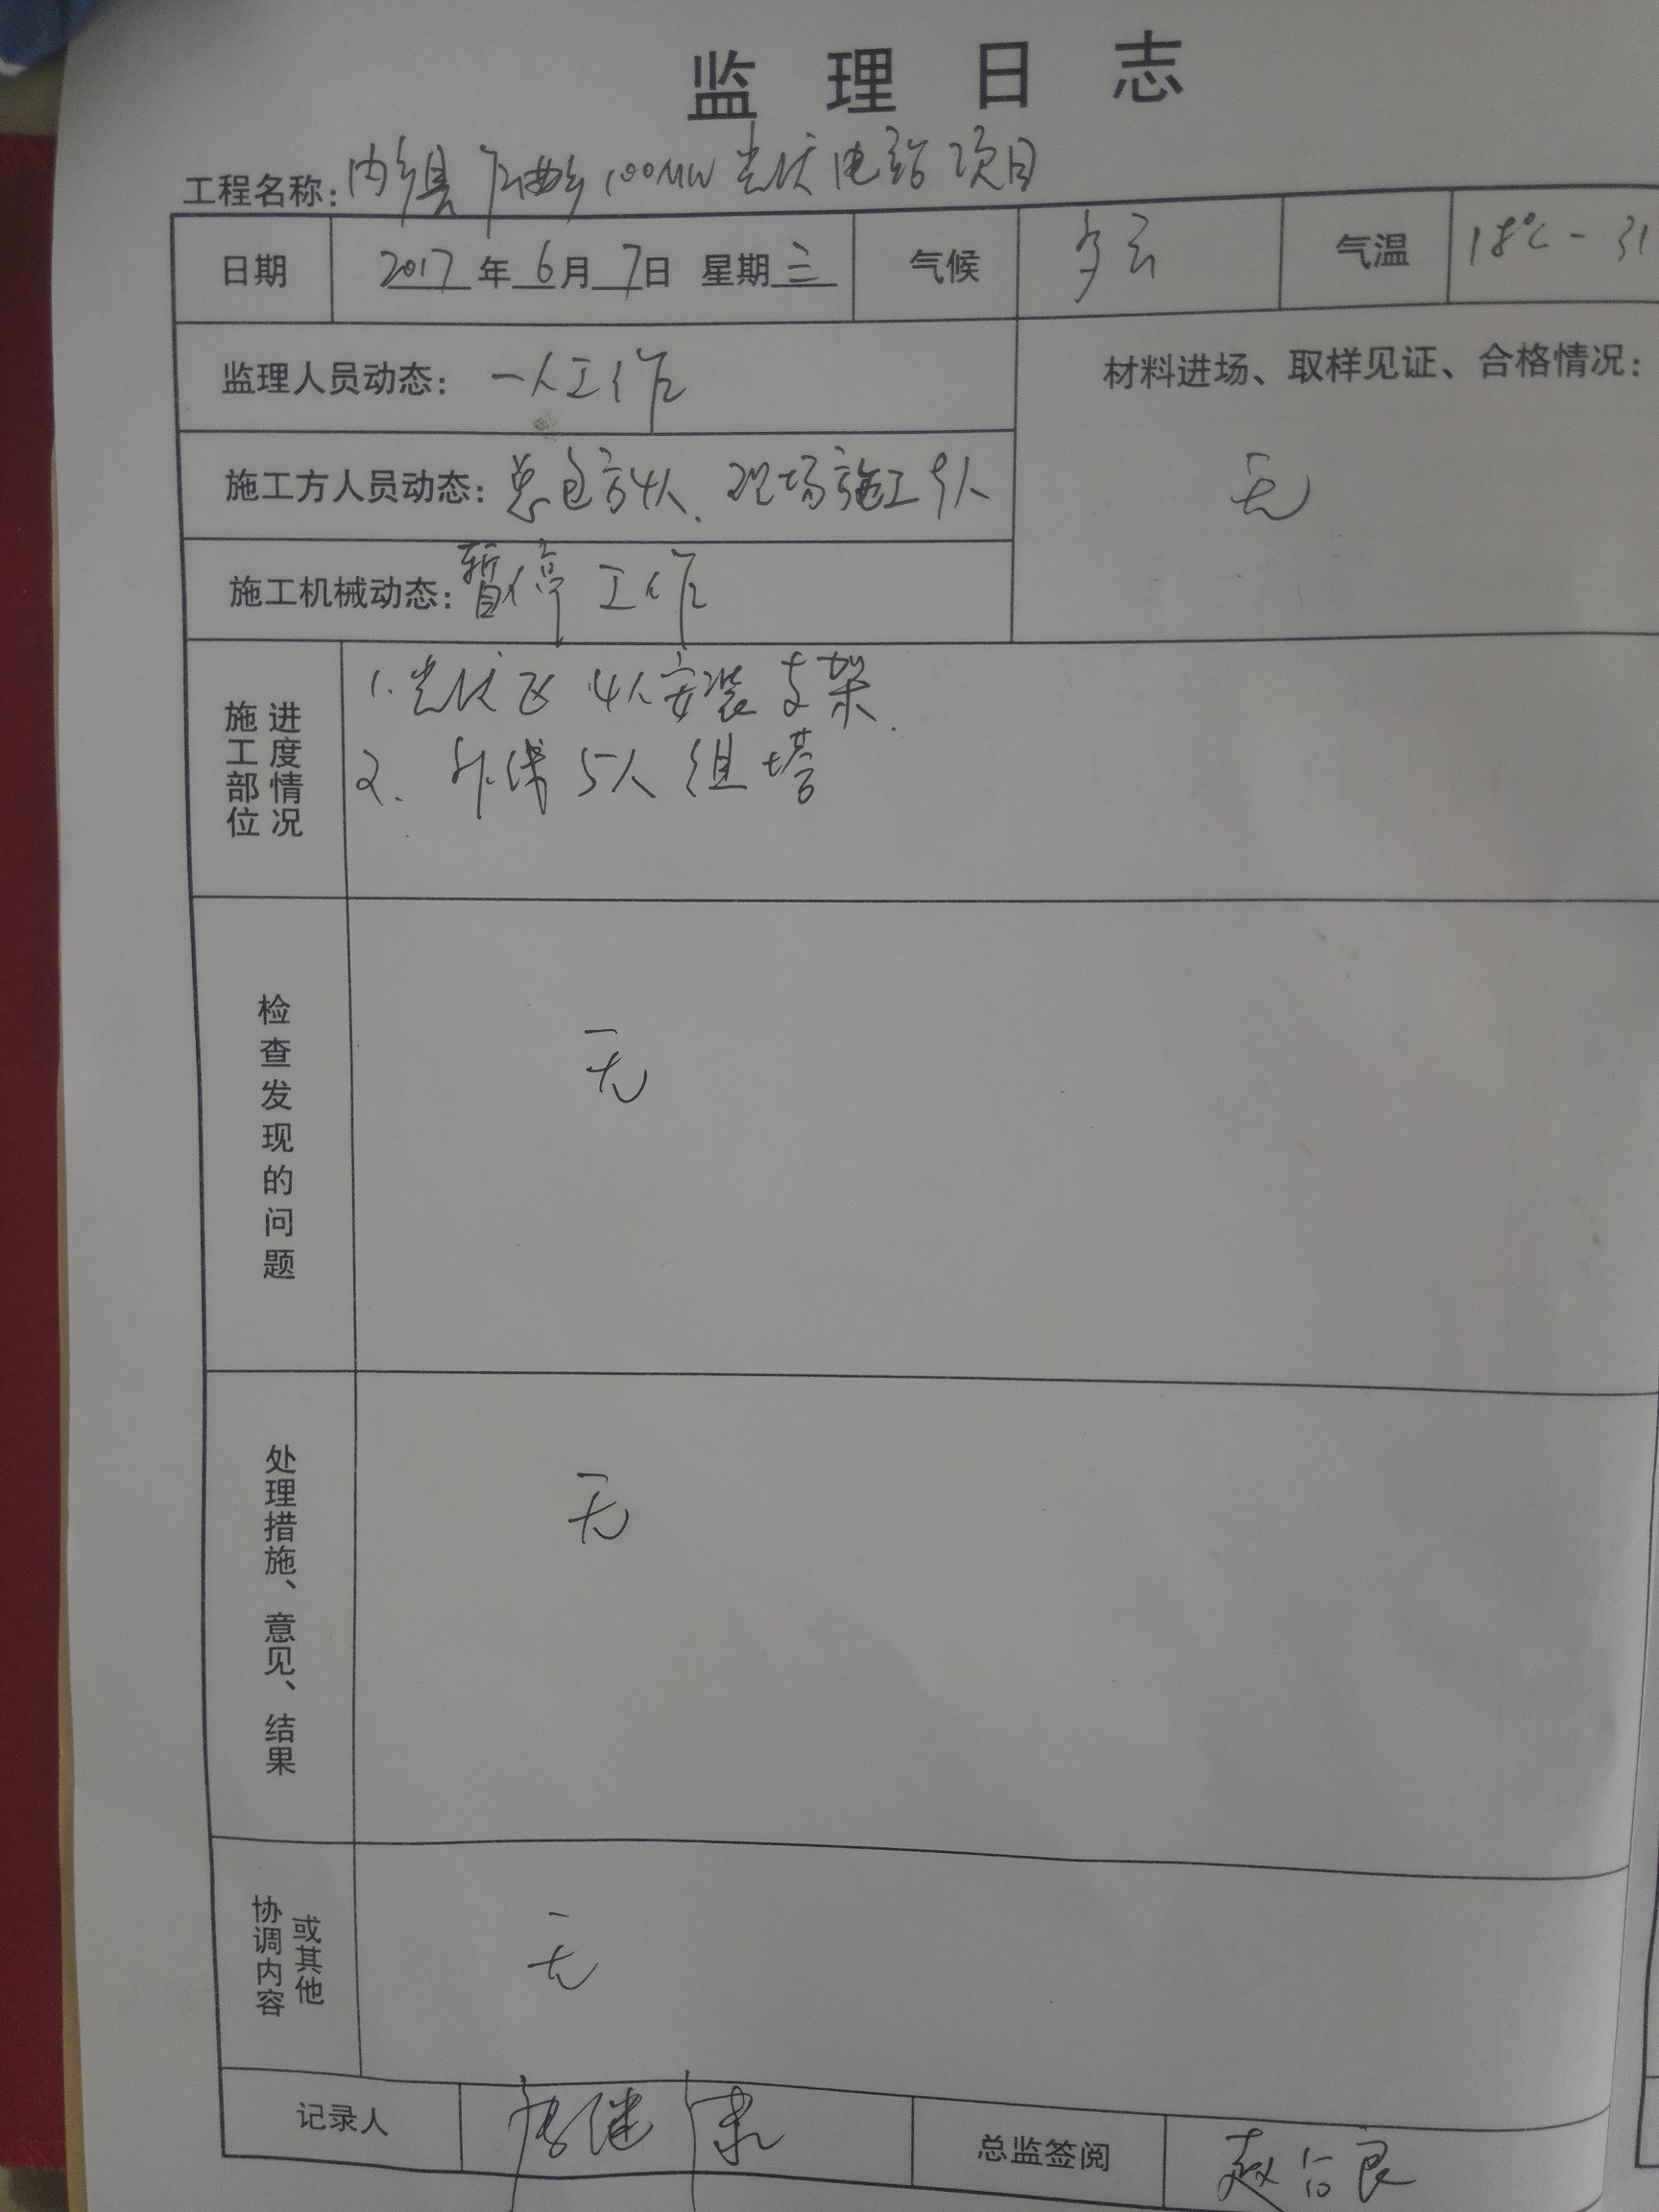 监理日志
工程名称: 内乡县 乡 100MW 光伏电站项目
日期 2017年6月7日 星期三 气候 多云 气温 18℃-31
监理人员动态: 一人工作
材料进场、取样见证、合格情况:
无
施工方人员动态: 总包方4人. 现场施工9人
施工机械动态: 暂停工作
施工部位 进度情况
1.光伏区 4人安装支架.
2. 外线5人组塔
检查发现的问题
无
处理措施、意见、结果
无
协调内容 或其他
无
记录人 唐继 总监签阅 赵 良